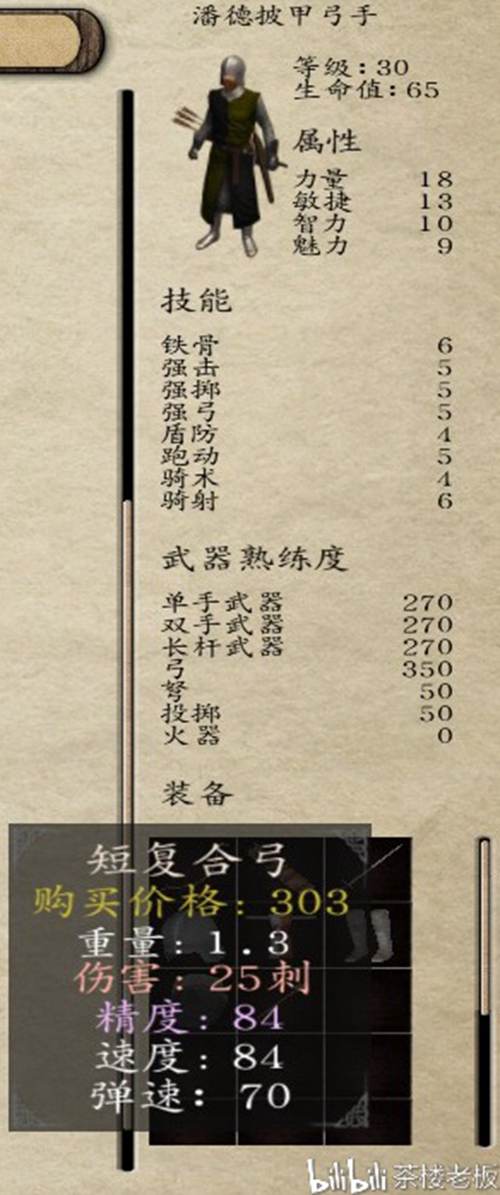 潘德披甲弓手
等级：30
生命值：65
属性
力量 18
敏捷 13
智力 10
魅力 9
技能
铁骨 6
强击 5
强掷 5
强弓 5
盾防 4
跑动 5
骑术 4
骑射 6
武器熟练度
单手武器 270
双手武器 270
长杆武器 270
弓 350
弩 50
投掷 50
火器 0
装备
短复合弓
购买价格：303
重量：1.3
伤害：25刺
精度：84
速度：84
弹速：70
bilibili 茶楼老板